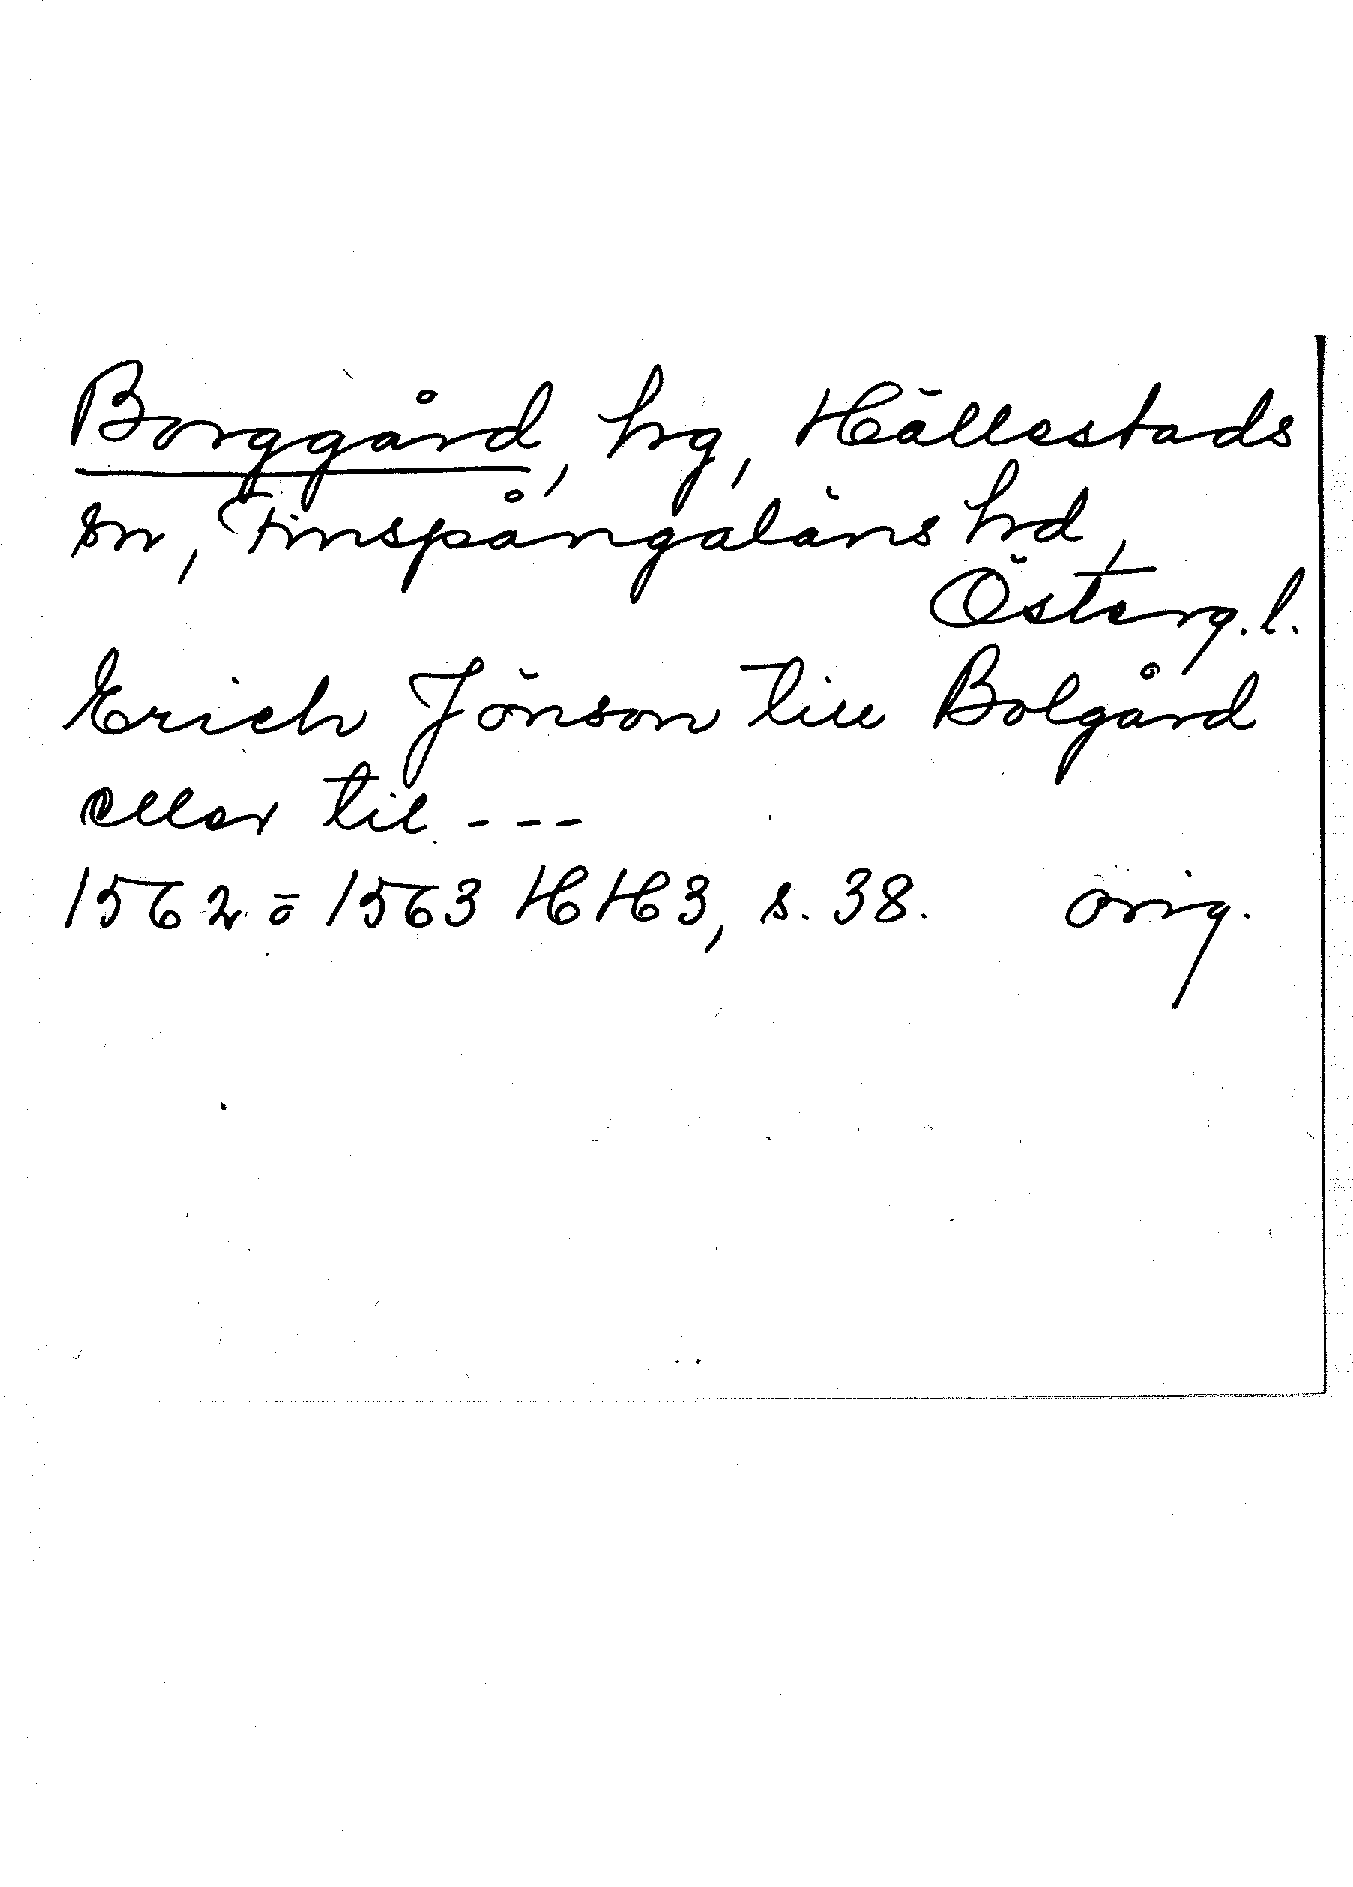 Borggård, hg, Hällestads
sn, Finspångaläns hd,
Österg.l.
Erich Jönson till Bolgård
eller til ---
1562 ō 1563 HH3, s. 38. orig.